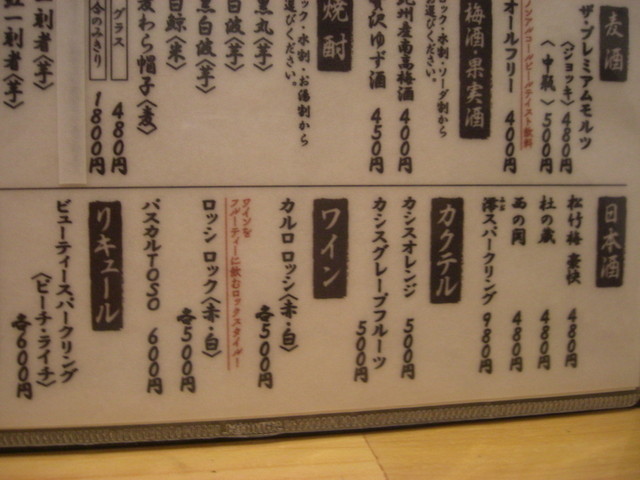 麦酒
ザ・プレミアムモルツ
〈ジョッキ〉480円
〈中瓶〉500円
ノンアルコールビールテイスト飲料
オールフリー 400円
梅酒・果実酒
ロック・水割・ソーダ割から
お選びください。
紀州産南高梅酒 400円
贅沢ゆず酒 450円
焼酎
ロック・水割・お湯割から
お選びください。
黒丸〈芋〉
白波〈芋〉
黒白波〈芋〉
白鯨〈米〉
麦わら帽子〈麦〉
グラス 480円
一合のみきり 1800円
一刺者〈芋〉
紅一刺者〈芋〉
日本酒
松竹梅 豪快 480円
杜の蔵 480円
西の関 480円
澪スパークリング 980円
カクテル
カシスオレンジ 500円
カシスグレープフルーツ 500円
ワイン
カルロ ロッシ〈赤・白〉 各500円
ワインを
フルーティーに飲むロックスタイル!
ロッシ ロック〈赤・白〉 各500円
パスカルTOSO 600円
リキュール
ビューティースパークリング
〈ピーチ・ライチ〉 各600円